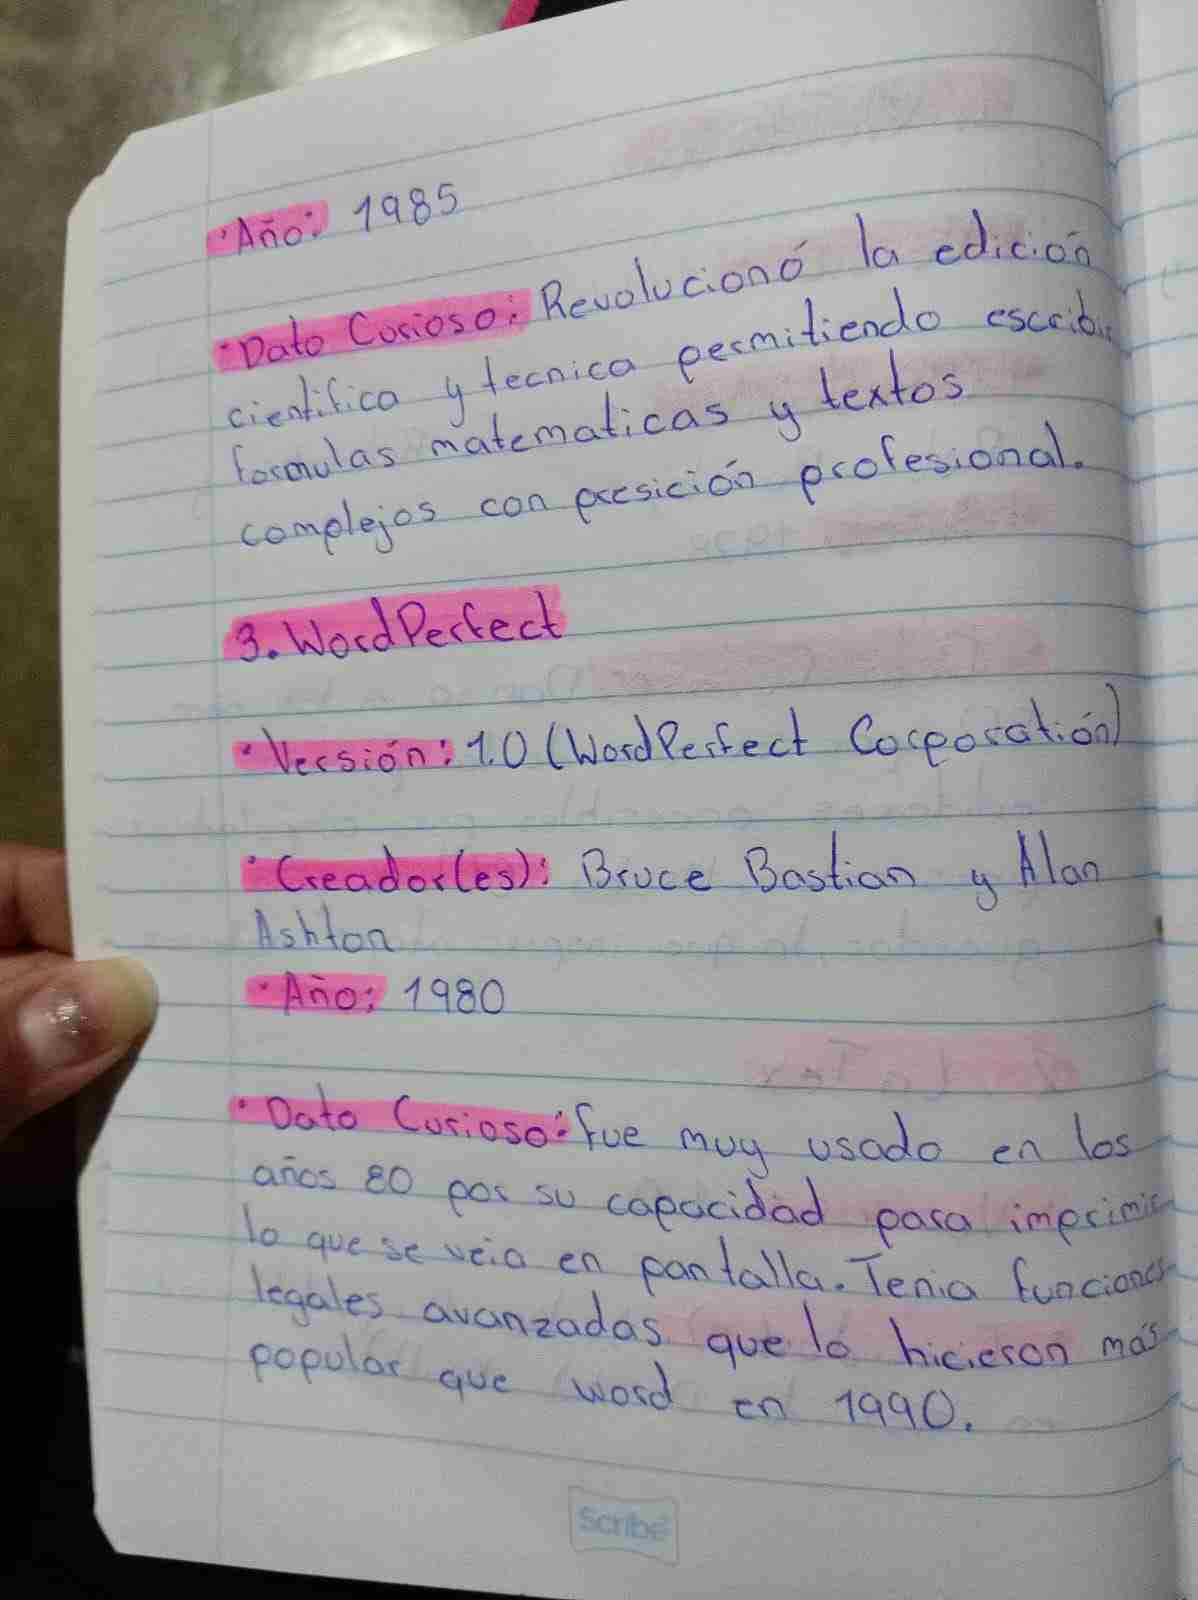 ·Año: 1985
·Dato Curioso: Revolucionó la edición
cientifica y tecnica permitiendo escribir
formulas matematicas y textos
complejos con presición profesional.
3. WordPerfect
·Versión: 1.0 (WordPerfect Corporatión)
·Creador(es): Bruce Bastian y Alan
Ashton
·Año: 1980
·Dato Curioso: fue muy usado en los
años 80 por su capacidad para imprimir
lo que se veia en pantalla. Tenia funciones
legales avanzadas que lo hicieron más
popular que word en 1990.
Scribe